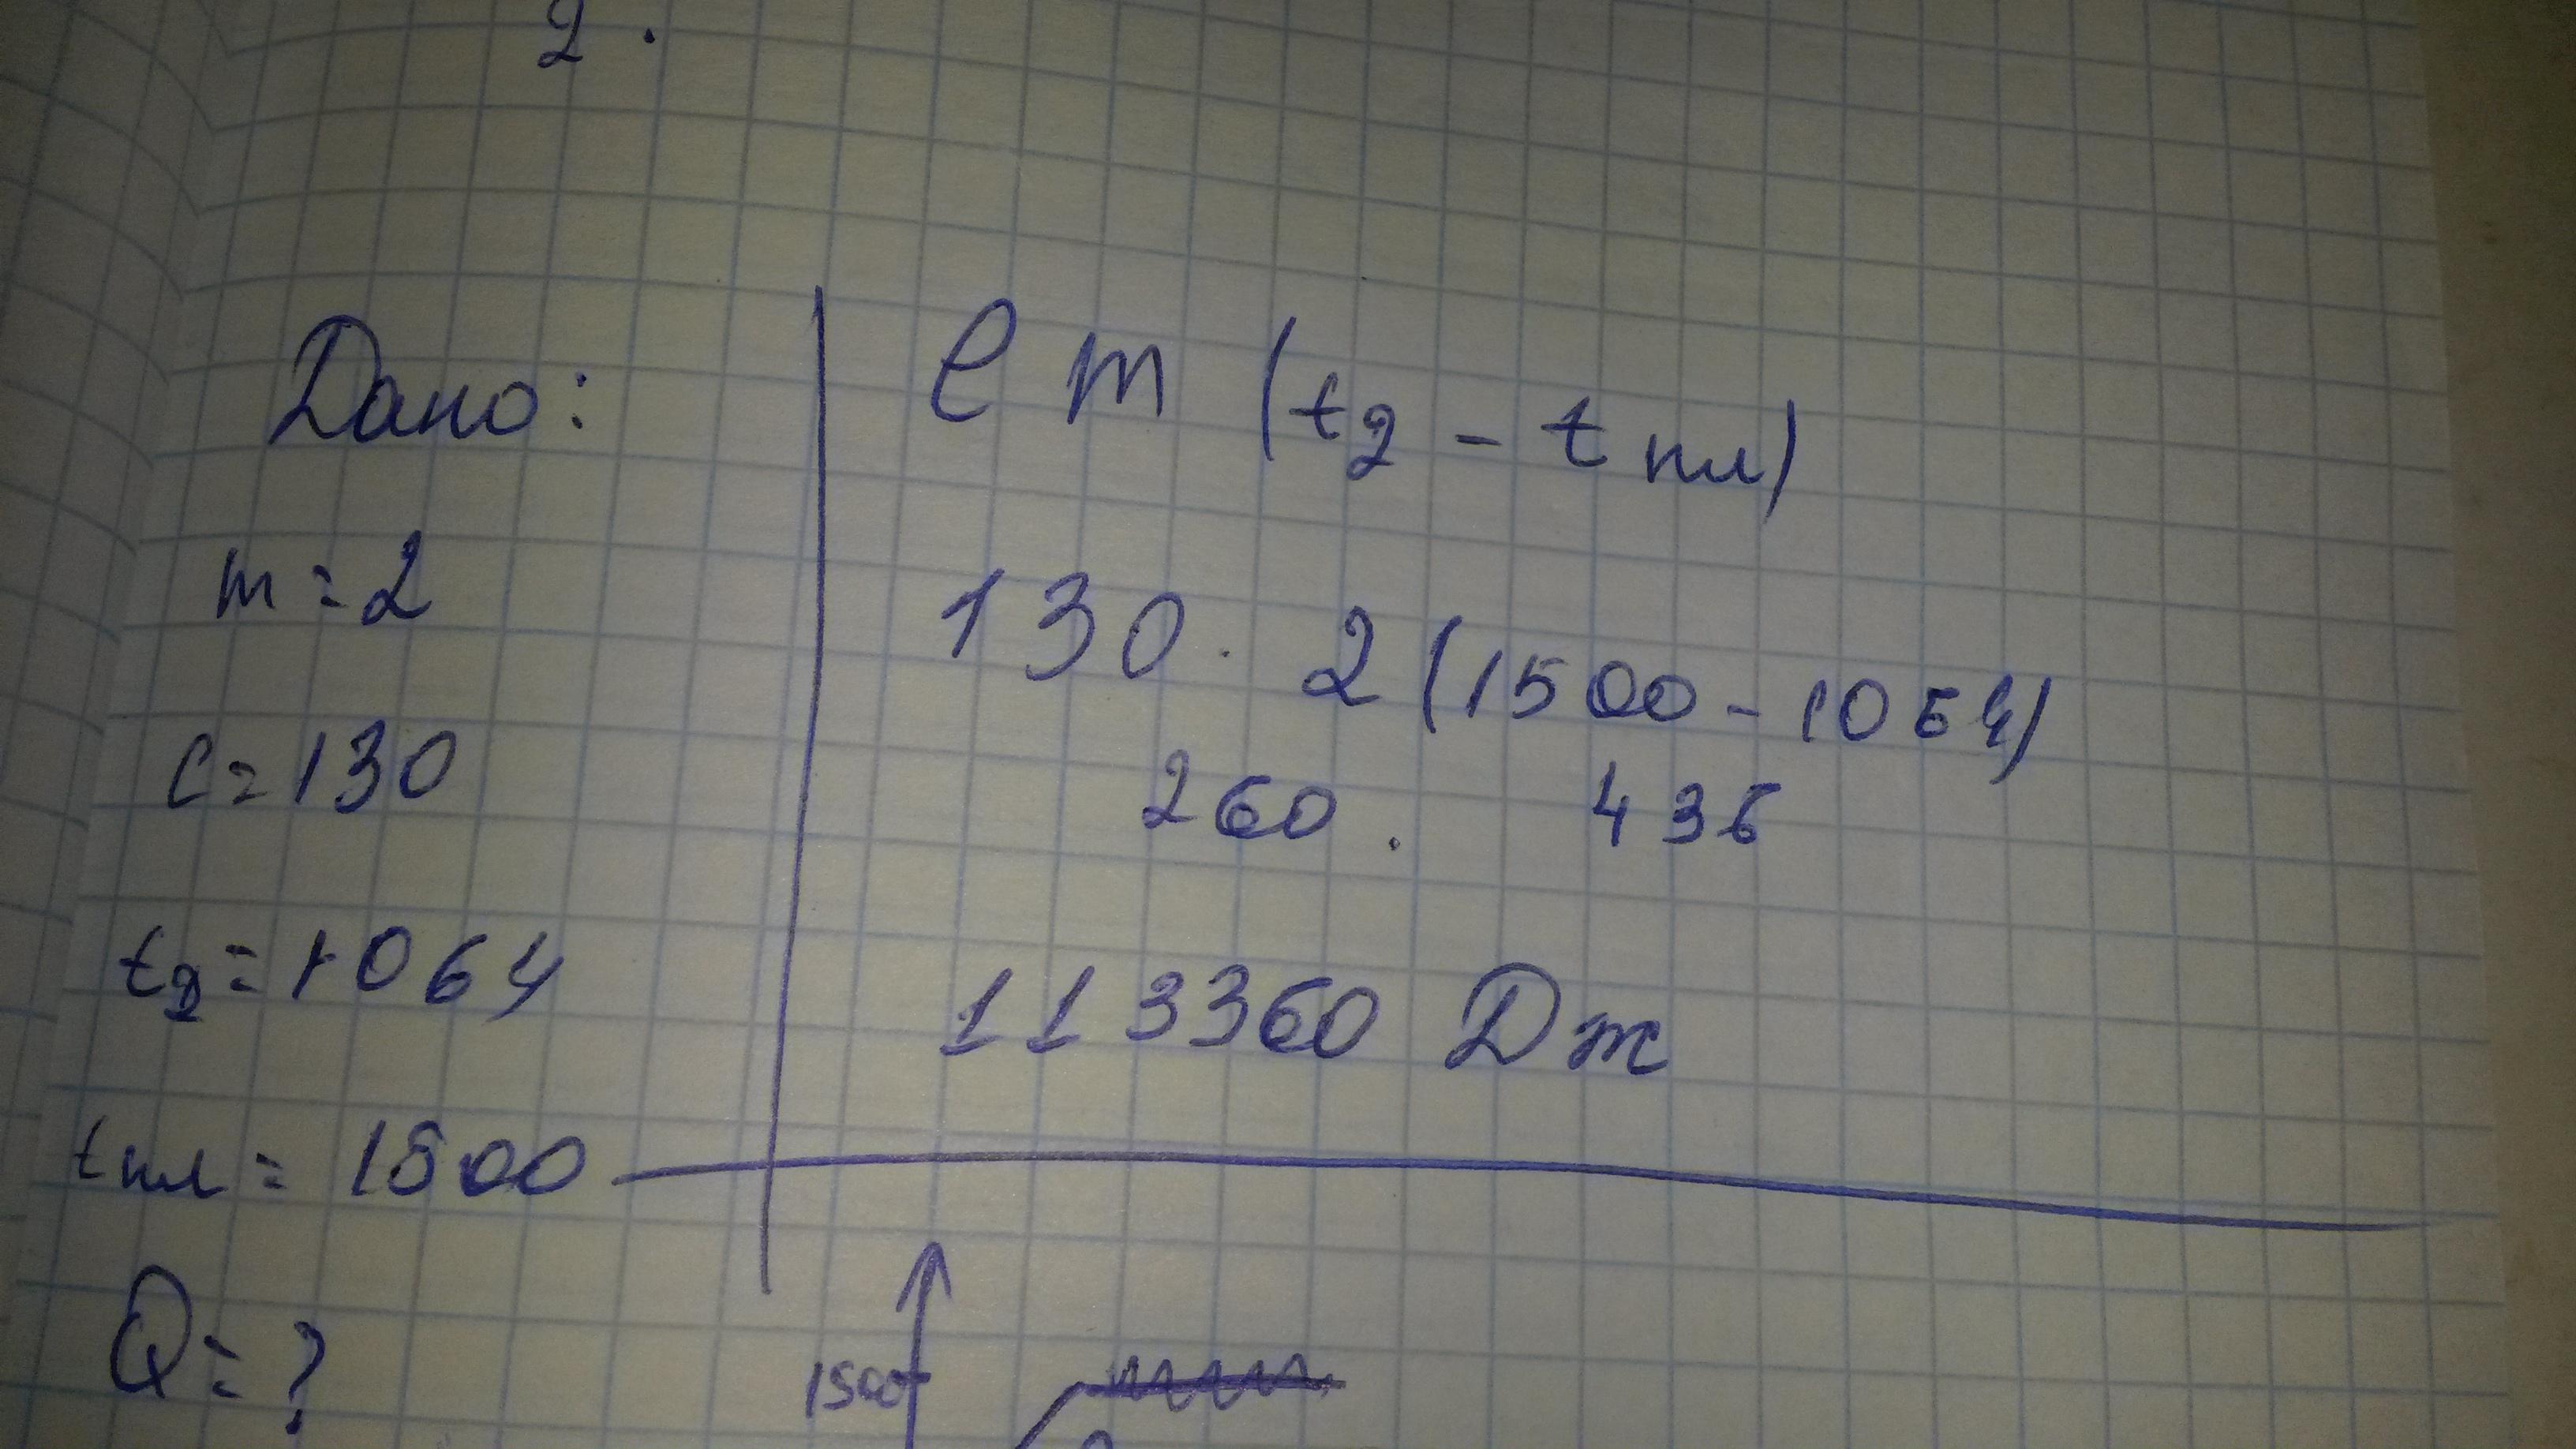 2.
Дано:
m = 2
c = 130
t2 = 1064
tпл = 1500
Q = ?
c m (t2 - tпл)
130 · 2 (1500 - 1064)
260 · 436
113360 Дж
1500